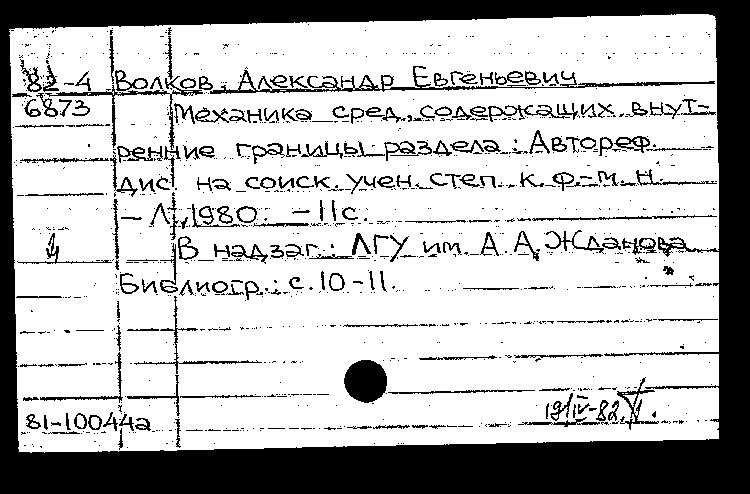 82-4 Волков, Александр Евгеньевич
6873 Механика сред, содержащих внут-
ренние границы раздела: Автореф.
дис. на соиск. учен. степ. к. ф.-м. н.
— Л., 1980. — 11с.
В надзаг.: ЛГУ им. А. А. Жданова
Библиогр.: с. 10-11.
81-10044а 19/IV-82.